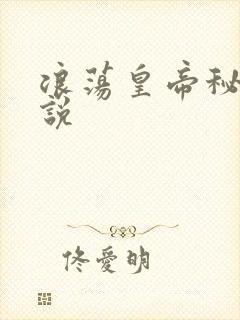 浪蕩皇帝秘
說
佟愛明